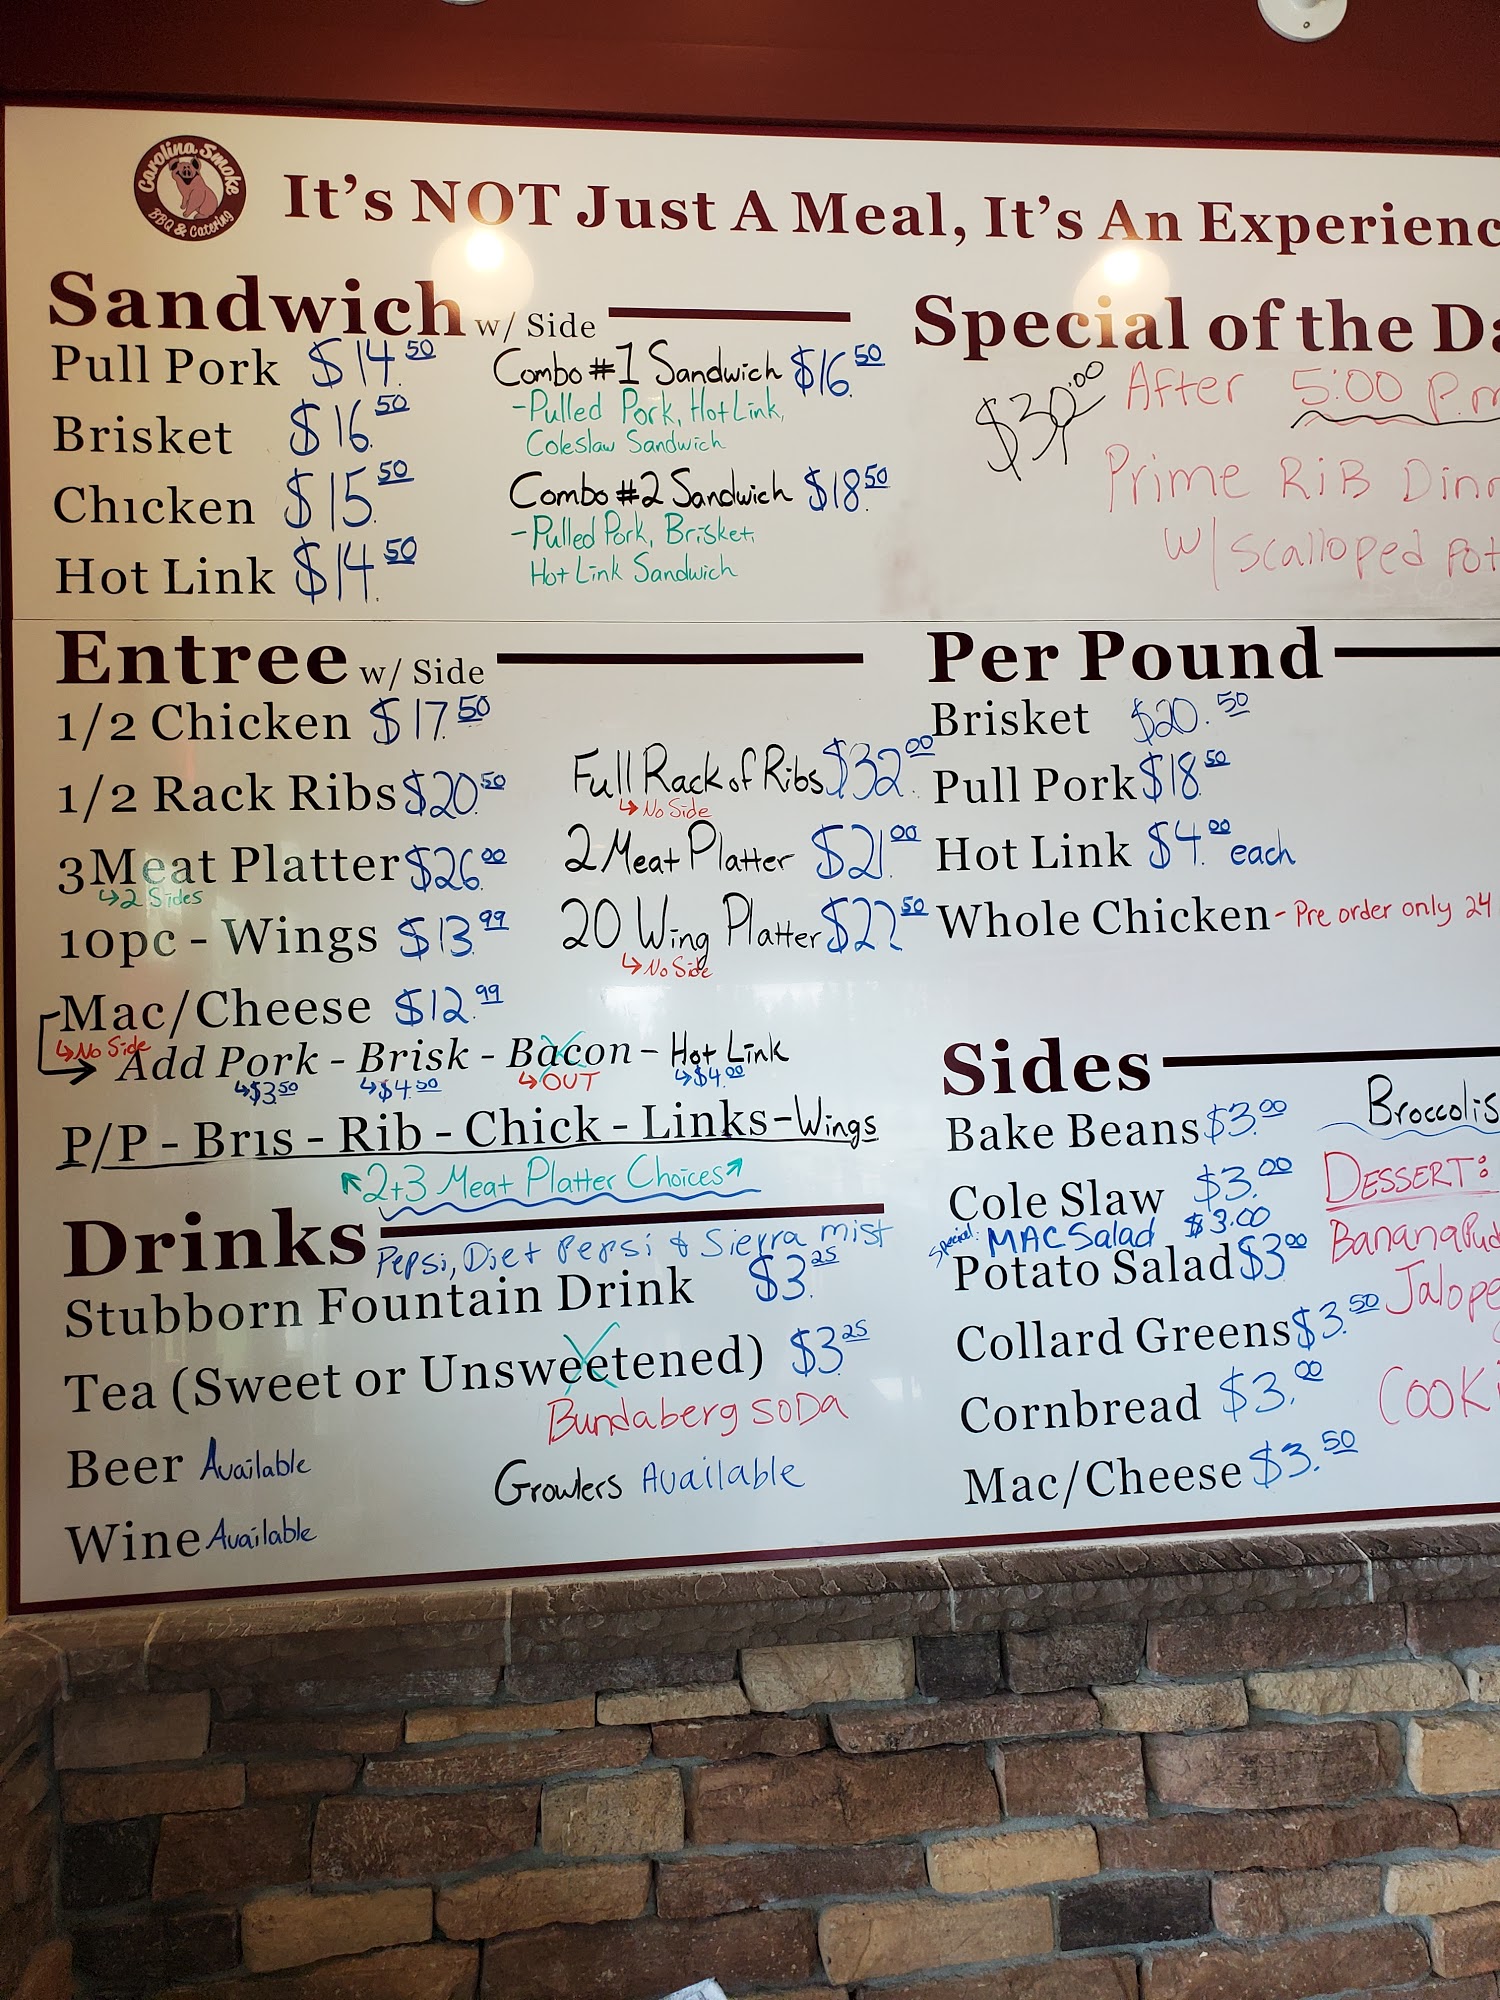 Carolina Smoke
BBQ & Catering
It's NOT Just A Meal, It's An Experienc
Sandwich w/ Side
Pull Pork $14.50
Brisket $16.50
Chicken $15.50
Hot Link $14.50
Combo #1 Sandwich $16.50
-Pulled Pork, Hot Link,
Coleslaw Sandwich
Combo #2 Sandwich $18.50
-Pulled Pork, Brisket,
Hot Link Sandwich
Special of the Da
$30.00
After 5:00 P.m
Prime RiB Dinn
w/ Scalloped Pot
Entree w/ Side
1/2 Chicken $17.50
1/2 Rack Ribs $20.50
3 Meat Platter $26.00
↳2 Sides
10pc - Wings $13.99
Mac/Cheese $12.99
↳No Side
Full Rack of Ribs $32.00
↳No Side
2 Meat Platter $21.00
20 Wing Platter $27.50
↳No Side
Add Pork - Brisk - Bacon - Hot Link
↳$3.50 ↳$4.50 ↳OUT ↳$4.00
P/P - Bris - Rib - Chick - Links - Wings
↖2+3 Meat Platter Choices↗
Per Pound
Brisket $20.50
Pull Pork $18.50
Hot Link $4.00 each
Whole Chicken - Pre order only 24
Drinks
Pepsi, Diet Pepsi & Sierra mist
Stubborn Fountain Drink $3.25
Tea (Sweet or Unsweetened) $3.25
Bundaberg SODA
Beer Available
Growlers Available
Wine Available
Sides
Bake Beans $3.00
Cole Slaw $3.00
Special: MAC Salad $3.00
Potato Salad $3.00
Collard Greens $3.50
Cornbread $3.00
Mac/Cheese $3.50
Broccolis
DESSERT:
Banana Pud
Jalope
COOKi